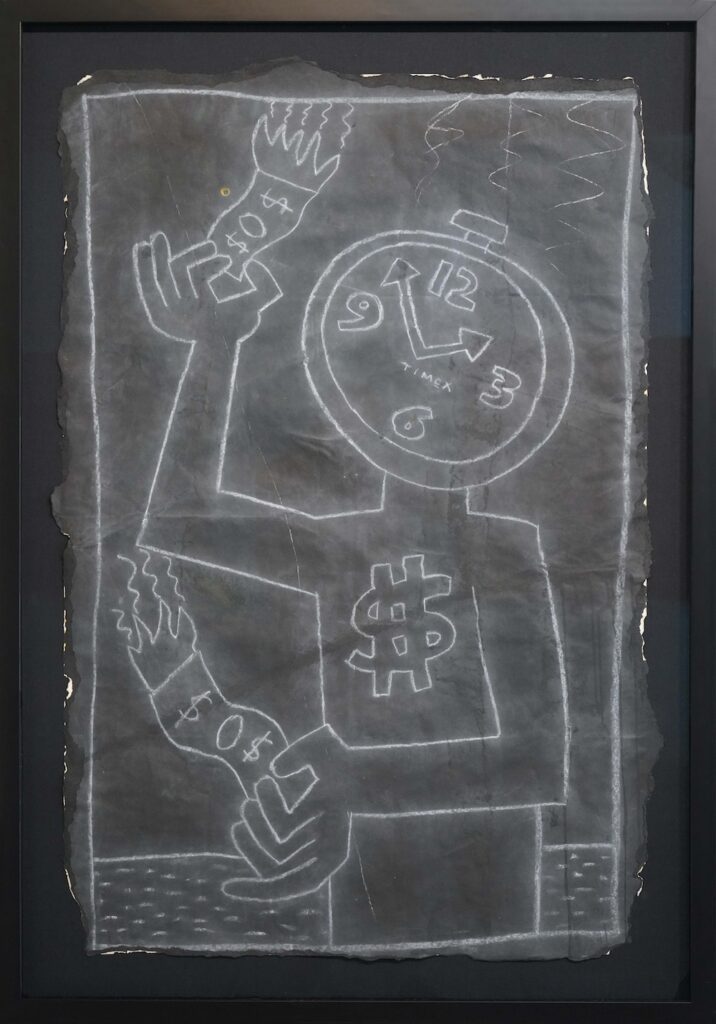 $ 0 $
12
9
3
TIMEX
6
$
$ 0 $